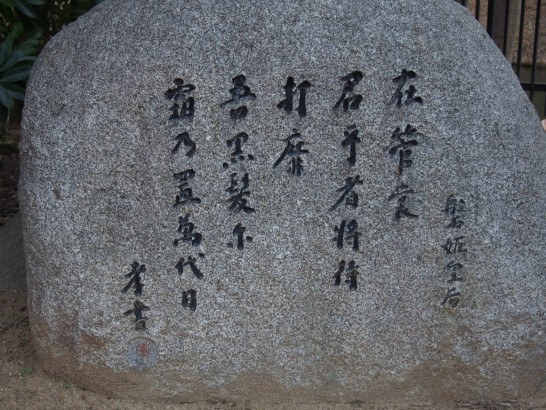 磐姫皇后
在管裳
君乎者将待
打靡
吾黒髪尓
霜乃置萬代日
孝書